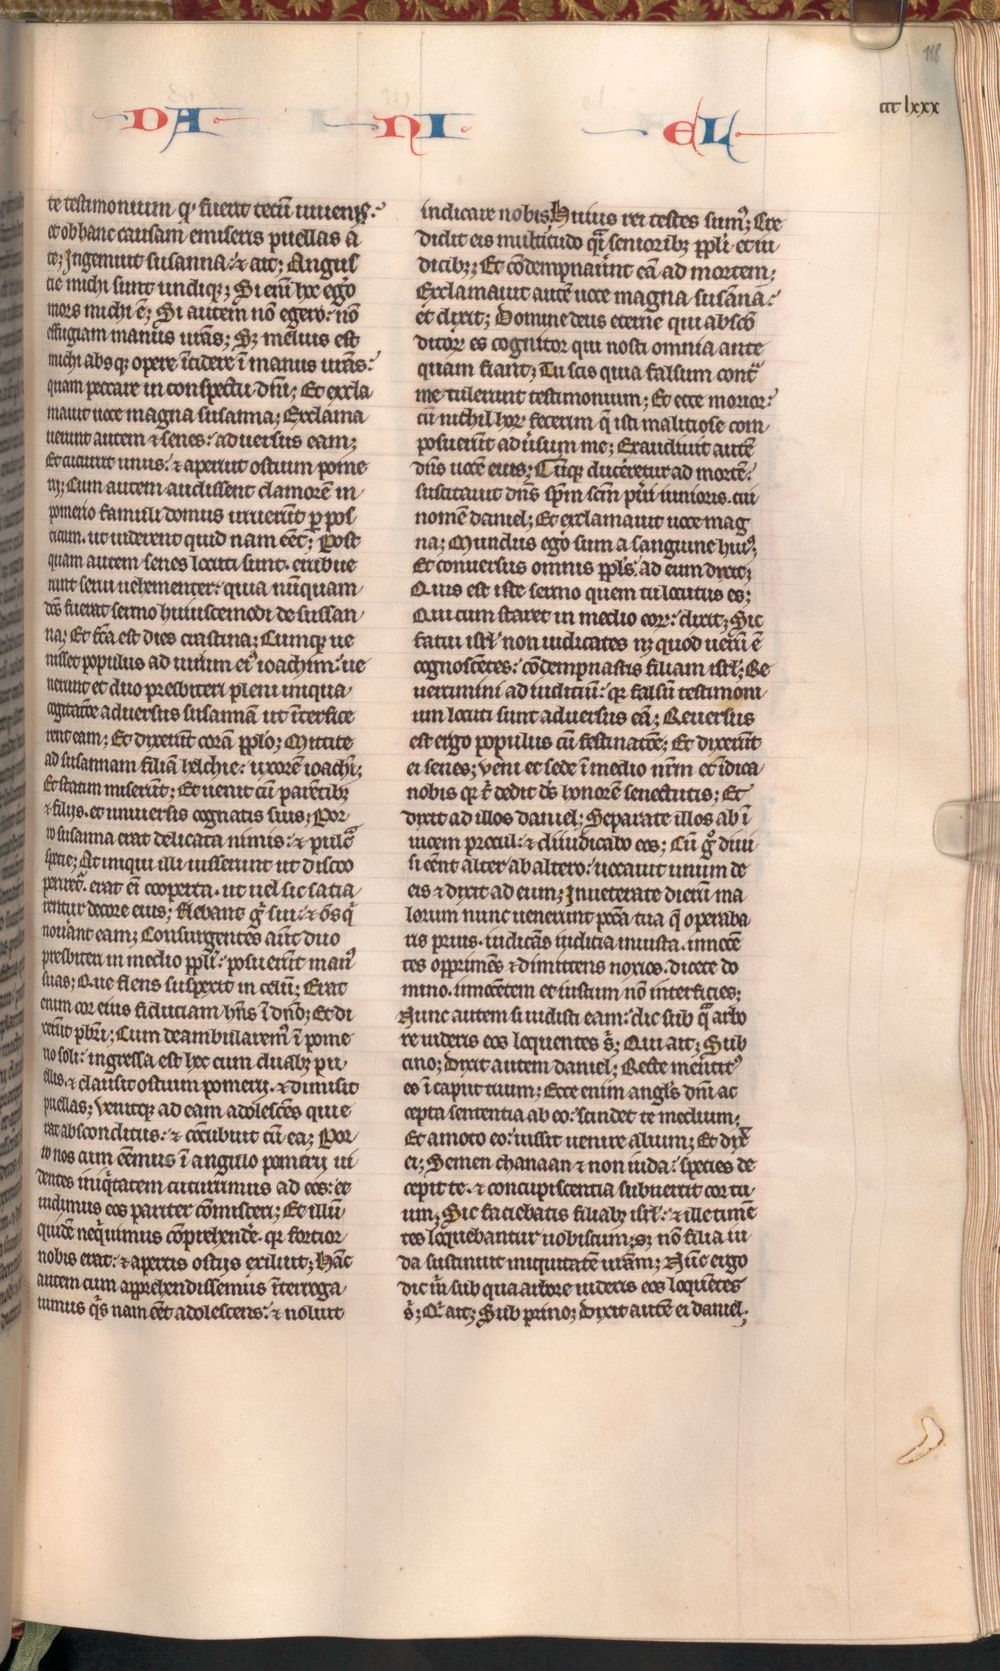 118
ccc lxxx
DA NI EL
te testimonium q̵ fuerit tecū iuuenis:
et ob hanc causam emiseris puellas a
te; Ingemuit susanna: ⁊ ait; Angus
tie michi sunt undiq;; Si eni̅ hec ego
mors michi ē; Si autem nō egero: nō
effugiam manus ur̄as; Sȝ melius est
michi absq; opere īcidere ī manus ur̄as:
quam peccare in conspectu dn̄i; Et excla
mauit uoce magna susanna; Exclama
uerunt autem ⁊ senes: aduersus eam;
Et cucurit unus: ⁊ aperuit ostium pome
rij; Cum autem audissent clamorē in
pomerio famuli domus irruerūt ꝑ pos
ticum. ut uiderent quid nam eēt; Post
quam autem senes locuti sunt. erubue
runt serui uehementer: quia nūquam
dc̄s fuerat sermo huiuscemodi de sussan
na; Et fc̄a est dies crastina; Cumq; ue
nisset populus ad uirum eiꝰ ioachim: ue
nerunt et duo presbiteri pleni iniqua
cogitatōe aduersus susannā ut īterfice
rent eam; Et dixerūt corā ppl̄o; Mittite
ad susannam filiā helchie: uxorē ioachī;
Et statim miserūt; Et uenit cū parētibȝ
⁊ filijs. et uniuersis cognatis suis; Por
ro susanna erat delicata nimis: ⁊ pulcͣ
specie; At iniqui illi iusserunt ut discoo
periret̄. erat eī cooperta. ut uel sic sacia
rentur decore eius; flebant gͦ sui: ⁊ ōs qͥ
nouāant eam; Consurgentes aūt duo
presbiteri in medio ppl̄i: posuerūt manꝰ
suas; Que flens suspexit in celū; Erat
enim cor eius fiduciam hn̄s ī dn̄o; Et di
xerūt pb̄ri; Cum deambularemꝰ ī pome
rio soli: ingressa est hec cum duabȝ pu
ellis. ⁊ clausit ostium pomerij. ⁊ dimisit
puellas; Uenitq; ad eam adolescēs qui e
rat absconditus: ⁊ cōcubuit cū ea; Por
ro nos cum eēmus ī angulo pomerij ui
dentes iniqͥtatem cucurimus ad eos: et
uidimus eos pariter cōmisceri; Et illū
quidē neqͥuimus cōprehendē. qꝛ fortior
nobis erat: ⁊ apertis ostijs exiliuit; Hāc
autem cum apprehendissemus īterroga
uimus qͥs nam eēt adolescens: ⁊ noluit
indicare nobis; Huius rei testes sumꝰ; Cre
didit eis multitudo qͣi senioribȝ ppl̄i et iu
dicibȝ; Et cōdempnauēnt eā ad mortem;
Exclamauit autē uoce magna susāna:
et dixit; Domine deus eterne qui abscō
ditoꝝ es cognitor qui nosti omnia ante
quam fiant; Tu scis quia falsum contͣ
me tulerunt testimonium; Et ecce morior:
cū nichil hoꝝ fecerim q̄ isti maliciose com
posuerūt aduͥsum me; Exaudiuit autē
dn̄s uocē eius; Cūq; duceretur ad mortē:
suscitauit dn̄s sp̄m sc̄m pu̅i iunioris. cui
nomē daniel; Et exclamauit uoce mag
na; Mundus ego sum a sanguine huiꝰ;
Et conuersus omnis ppl̄s: ad eum dixit;
Quis est iste sermo quem tu locutus es;
Qui cum staret in medio eoꝝ: dixit; Sic
fatui isrl̄: non iudicates nȝ quod uerū ē
cognoscētes: cōdempnastis filiam isrl̄; Re
uertimini ad iudiciū: qꝛ falsū testimoni
um locuti sunt aduersus eā; Reuersus
est ergo populus cū festinatōe; Et dixerūt
ei senes; Ueni et sede ī medio nr̄m et īdica
nobis qꝛ t̄ dedit dȝ honorē senectutis; Et
dixit ad illos daniel; Separate illos ab ī
uicem procul: ⁊ diiudicabo eos; Cū gͦ diui
si eēnt alter ab altero: uocauit unum de
eis ⁊ dixit ad eum; Inueterate dierū ma
lorum nunc uenerunt pc̄ca tua q̄ operaba
ris prius. iudicās iudicia iniusta. innocē
tes opprimēs ⁊ dimittens noxios. dicēte do
mino. innocētem et iustum nō interficies;
Nunc autem si uidisti eam: dic sub qͣ arbo
re uideris eos loquentes s̄; Qui ait; Sub
cino; Dixit autem daniel; Recte mētitꝰ
es ī caput tuum; Ecce enim angl̄s dn̄i ac
cepta sententia ab eo: scindet te medium;
Et amoto eo: iussit uenire alium; Et dix̄
ei; Semen chanaan ⁊ non iuda: species de
cepit te. ⁊ concupiscentia subuertit cor tu
um; Sic faciebatis filiabȝ isrl̄: ⁊ ille timē
tes loquebantur uobiscum; sȝ nō filia iu
da sustinuit iniquitatē ur̄am; Nūc ergo
dic m̄ sub qua arbore uideris eos loquētes
s̄; Qͥ ait; Sub prino; Dixit autē ei daniel;